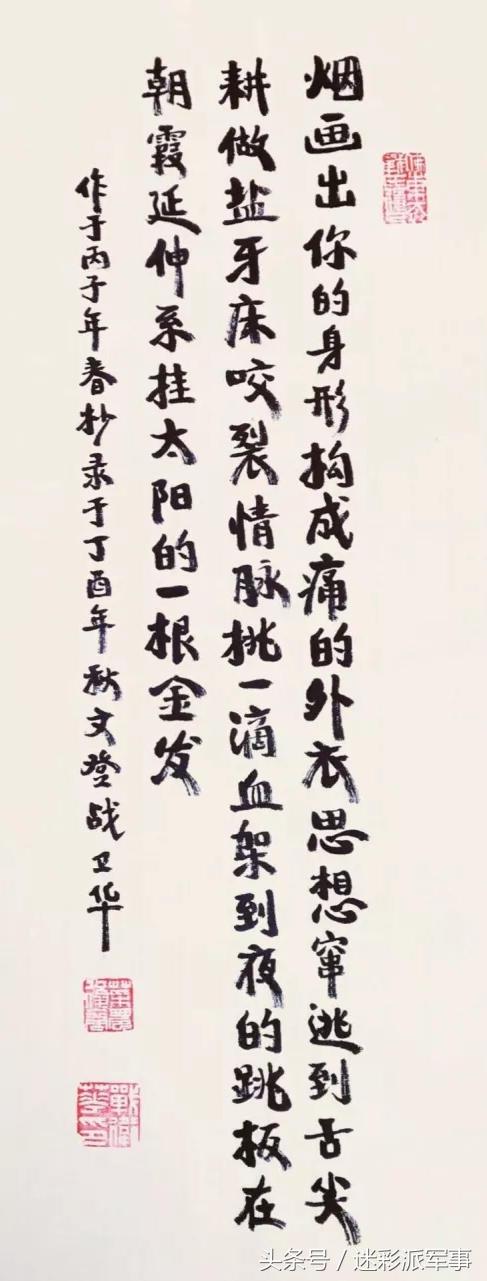 烟画出你的身形构成痛的外衣思想窜逃到舌尖
耕做盐牙床咬裂情脉挑一滴血架到夜的跳板在
朝霞延伸系挂太阳的一根金发
作于丙子年春抄录于丁酉年秋文登战卫华
戰衛華印
头条号 / 迷彩派军事